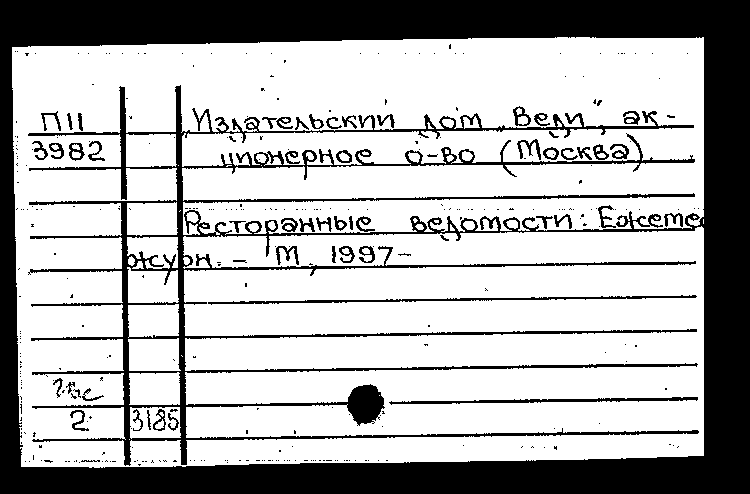 П11 „Издательский дом „Веди“, ак-
3982 ционерное о-во (Москва).
Ресторанные ведомости: Ежемес
журн. – М, 1997–
2 3185